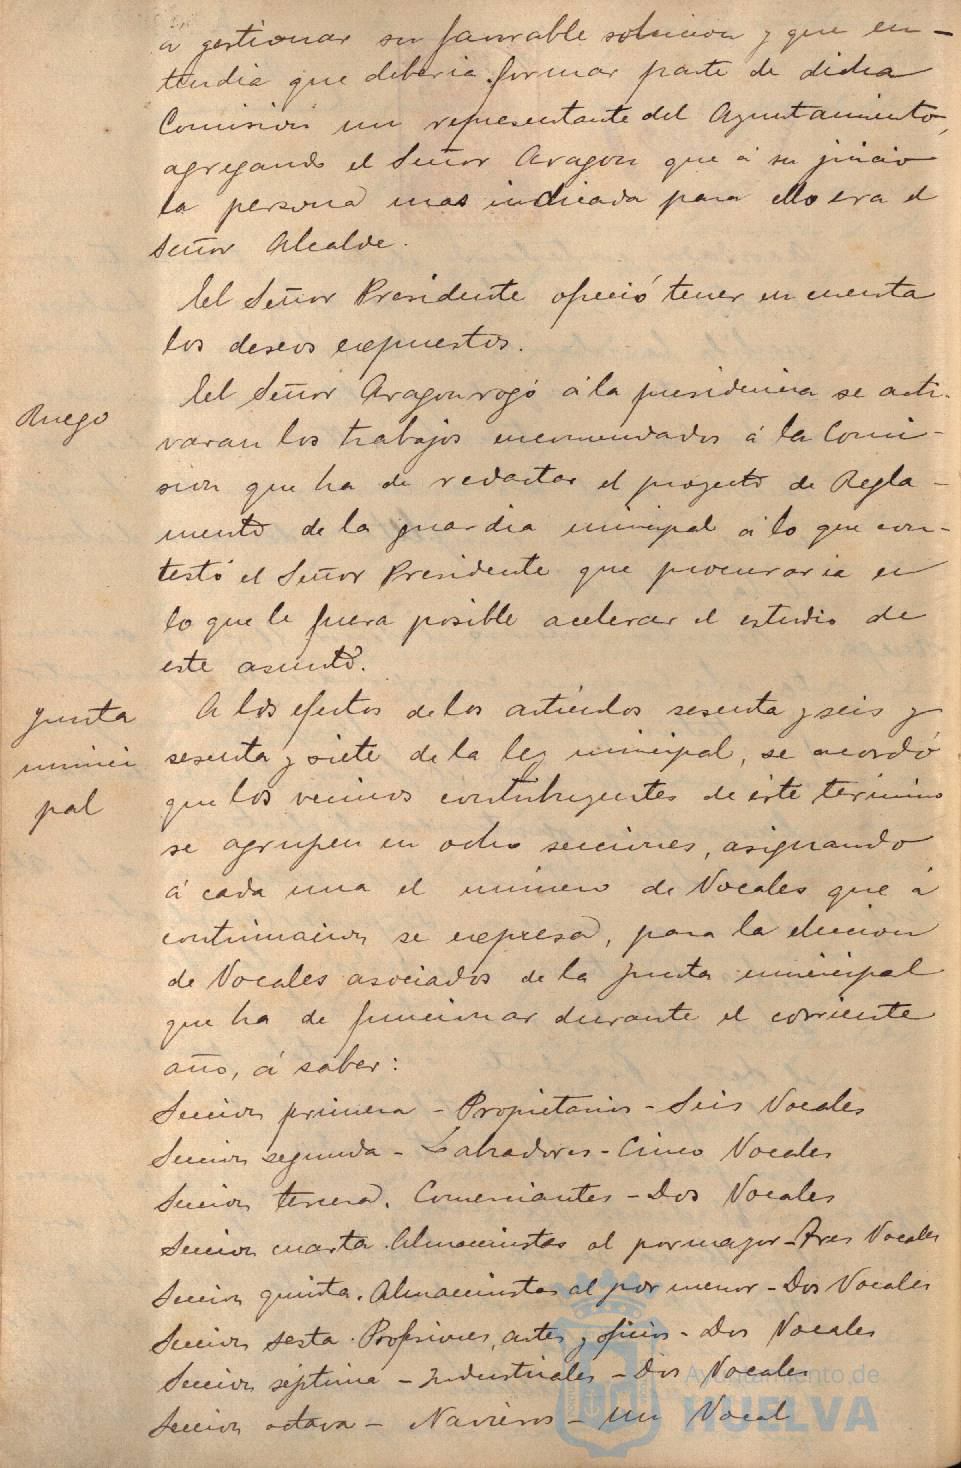 á gestionar su favorable solucion y que en-
tendia que deberia formar parte de dicha
Comision un representante del Ayuntamiento,
agregando el Señor Aragon que á su juicio
la persona mas indicada para ello era el
Señor Alcalde.
El Señor Presidente ofreció tener en cuenta
los deseos expuestos.
Ruego
El Señor Aragon rogó á la presidencia se acti-
varan los trabajos encomendados á la Comi-
sion que ha de redactar el proyecto de Regla-
mento de la guardia municipal á lo que con-
testó el Señor Presidente que procuraria en
lo que le fuera posible acelerar el estudio de
este asunto.
Junta
munici
pal
A los efectos de los articulos sesenta y seis y
sesenta y siete de la ley municipal, se acordó
que los vecinos contribuyentes de este término
se agrupen en ocho secciones, asignando
á cada una el número de Vocales que á
continuacion se expresa, para la eleccion
de Vocales asociados de la Junta municipal
que ha de funcionar durante el corriente
año, á saber:
Seccion primera - Propietarios - Seis Vocales
Seccion segunda - Labradores - Cinco Vocales
Seccion tercera. Comerciantes - Dos Vocales
Seccion cuarta. Almacenistas al por mayor - Tres Vocales
Seccion quinta. Almacenistas al por menor - Dos Vocales
Seccion sesta. Profesiones, artes y oficios - Dos Vocales
Seccion séptima - Industriales - Dos Vocales
Seccion octava - Navieros - Un Vocal
Ayuntamiento de
HUELVA